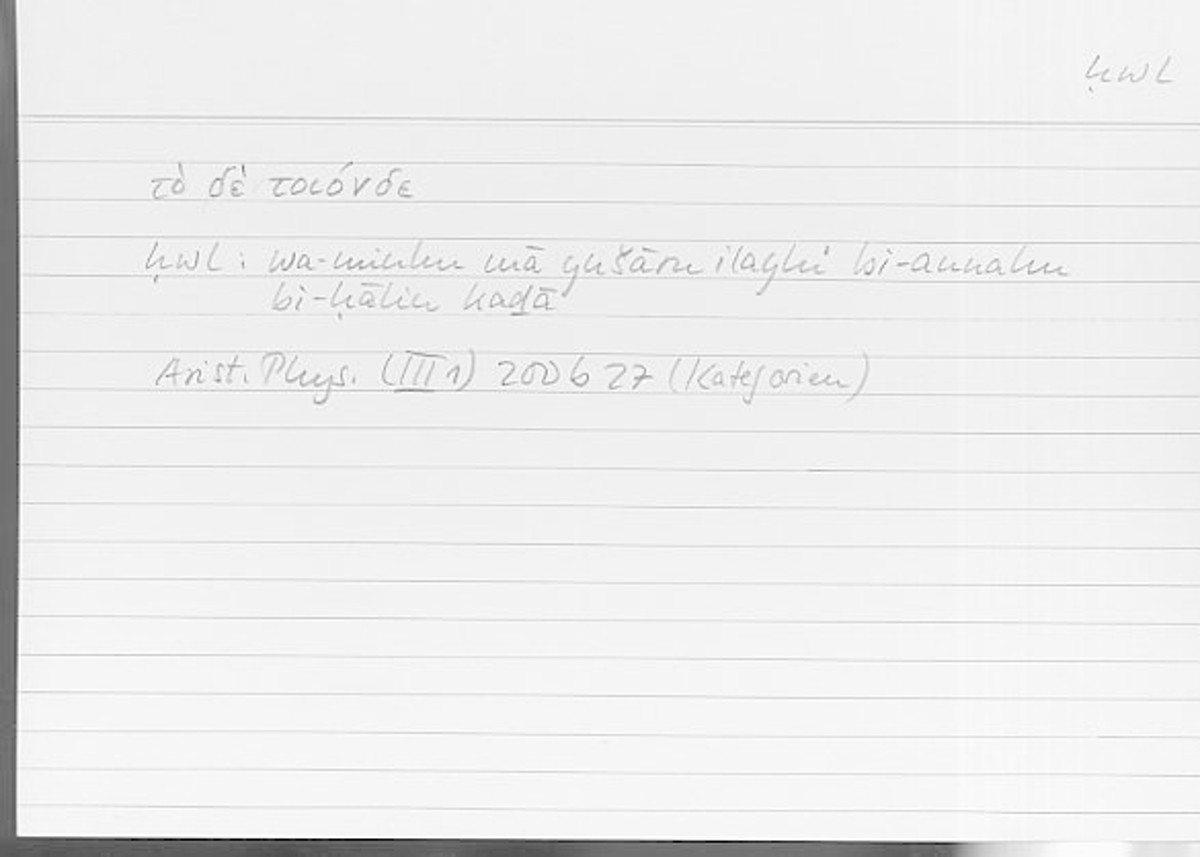 ḥwl
τὸ δὲ τοιόνδε
ḥwl: wa-minhu mā yušāru ilayhi bi-annahu
bi-ḥālin kaḏā
Arist. Phys. (III 1) 200 b 27 (Kategorien)